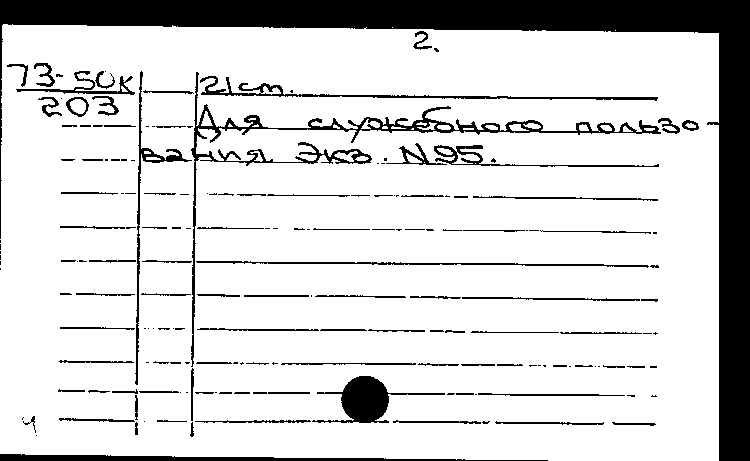 2.
73-50к
203
21 cm.
Для служебного пользо-
вания. Экз. N95.
ч